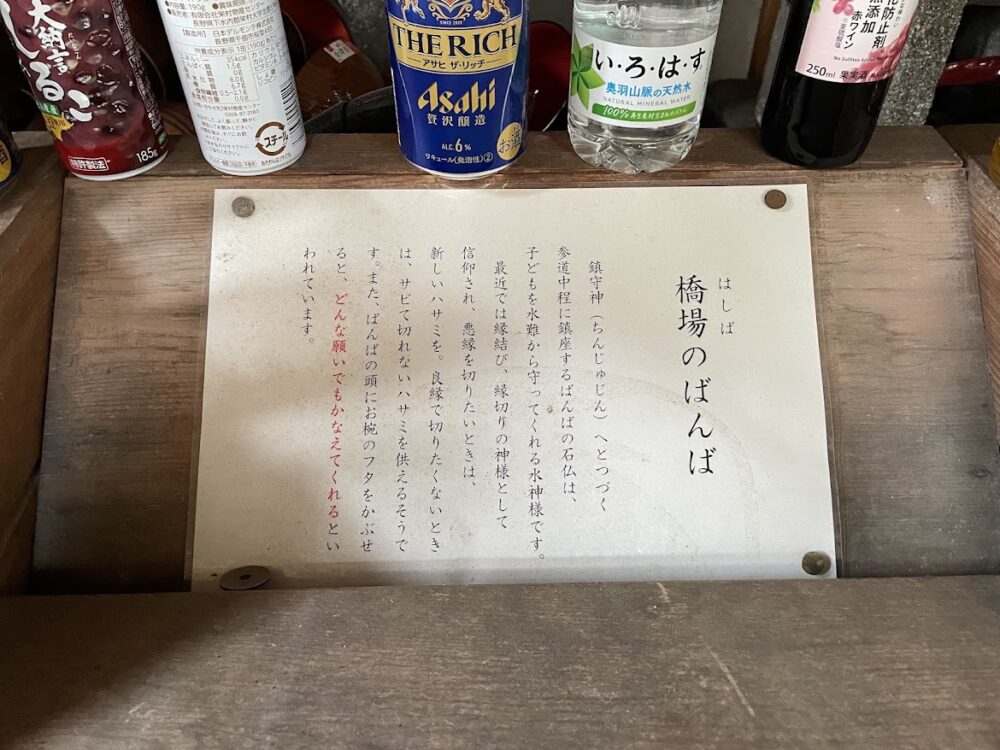 大納言
しるこ
特許製法
185g
190g
販売者/有限会社栄村物産センター
スチール
THE RICH
アサヒ ザ・リッチ
Asahi
贅沢醸造
ALC.6%
リキュール(発泡性)②
お酒
い・ろ・は・す
奥羽山脈の天然水
NATURAL MINERAL WATER
酸化防止剤
無添加
赤ワイン
250ml 果実酒
はしば
橋場のばんば
鎮守神(ちんじゅじん)へとつづく
参道中程に鎮座するばんばの石仏は、
子どもを水難から守ってくれる水神様です。
最近では縁結び、縁切りの神様として
信仰され、悪縁を切りたいときは、
新しいハサミを。良縁で切りたくないとき
は、サビて切れないハサミを供えるそうで
す。また、ばんばの頭にお椀のフタをかぶせ
ると、どんな願いでもかなえてくれるとい
われています。